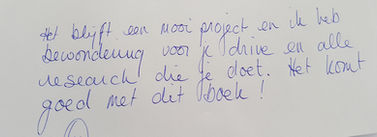 Het blijft een mooi project en ik heb
bewondering voor je drive en alle
research die je doet. Het komt
goed met dit boek!